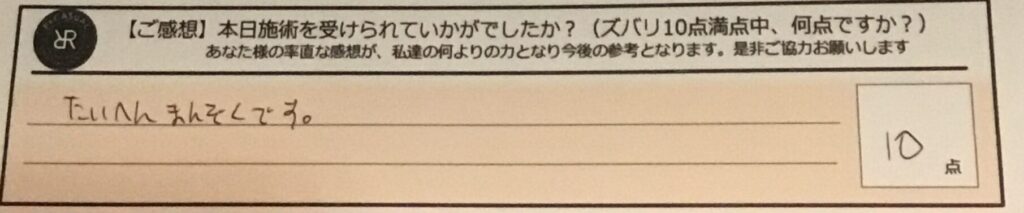 【ご感想】本日施術を受けられていかがでしたか？（ズバリ10点満点中、何点ですか？）
あなた様の率直な感想が、私達の何よりの力となり今後の参考となります。是非ご協力お願いします
たいへんまんぞくです。
10点